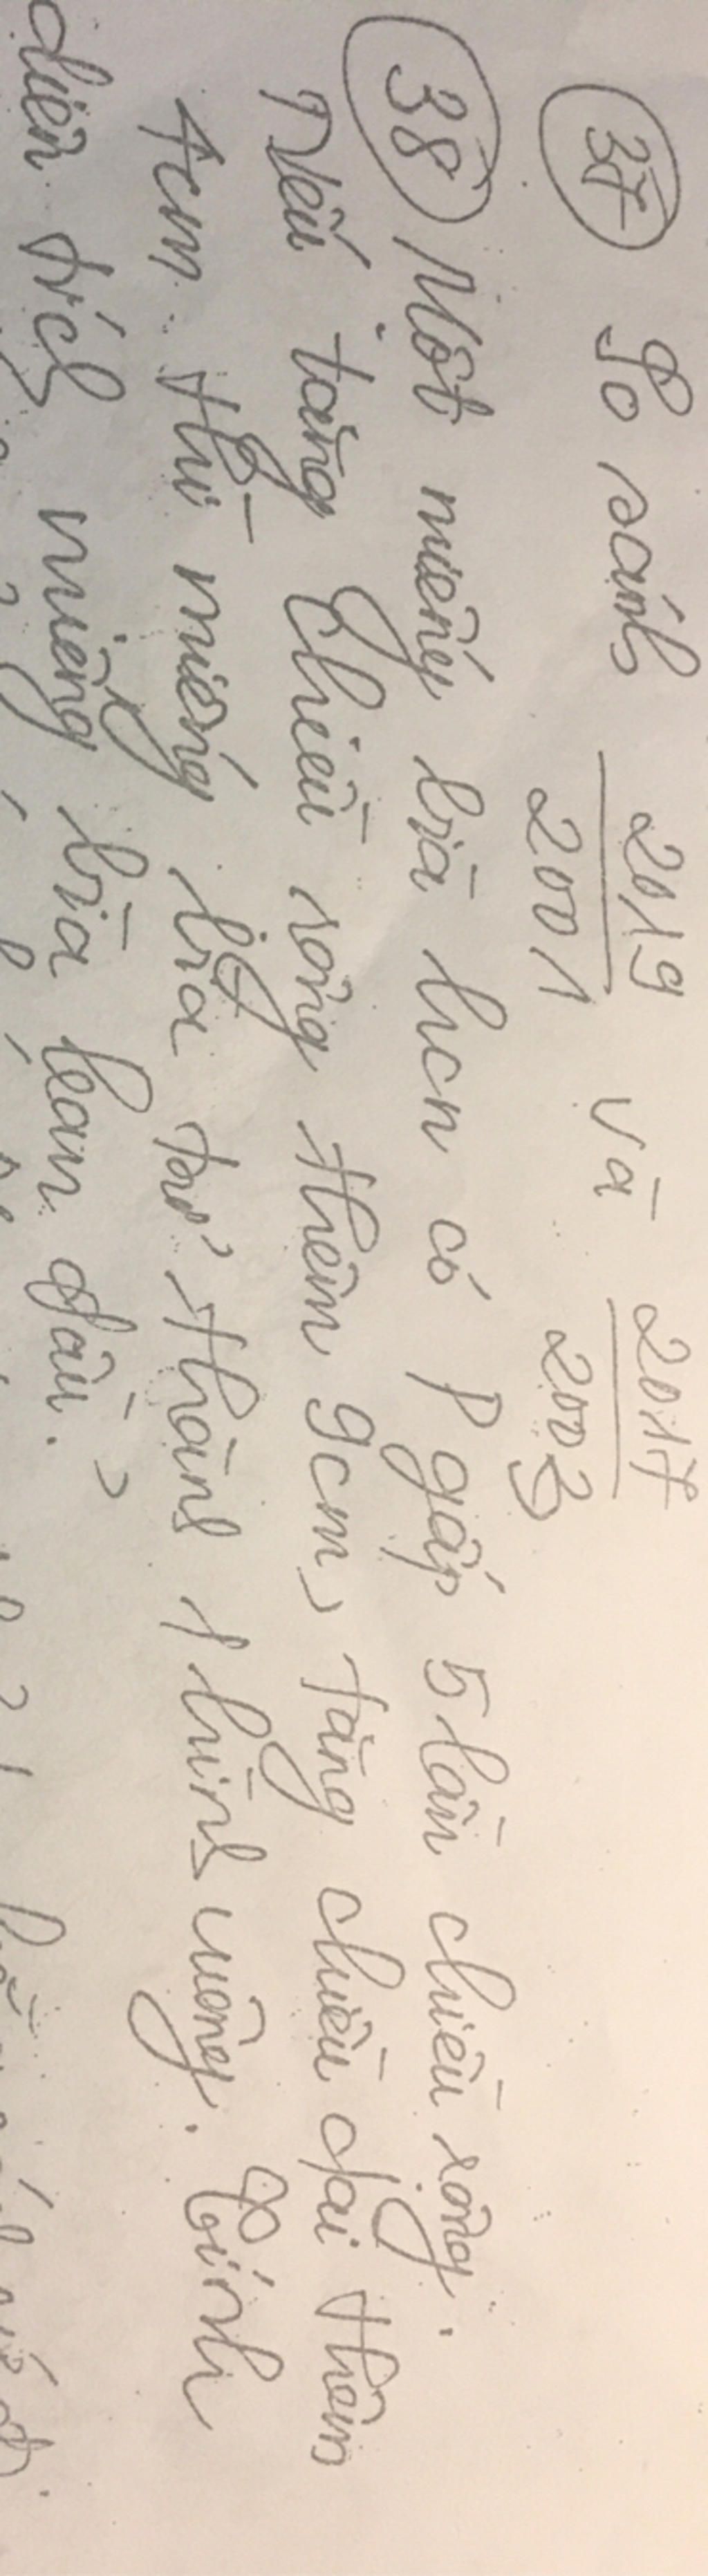 37 So sánh 2019/2001 và 2017/2003
38 Một miếng bìa hcn có P gấp 5 lần chiều rộng.
Nếu tăng chiều rộng thêm 9cm, tăng chiều dài thêm
1cm thì miếng bìa trở thành 1 hình vuông. Tính
diện tích miếng bìa ban đầu.